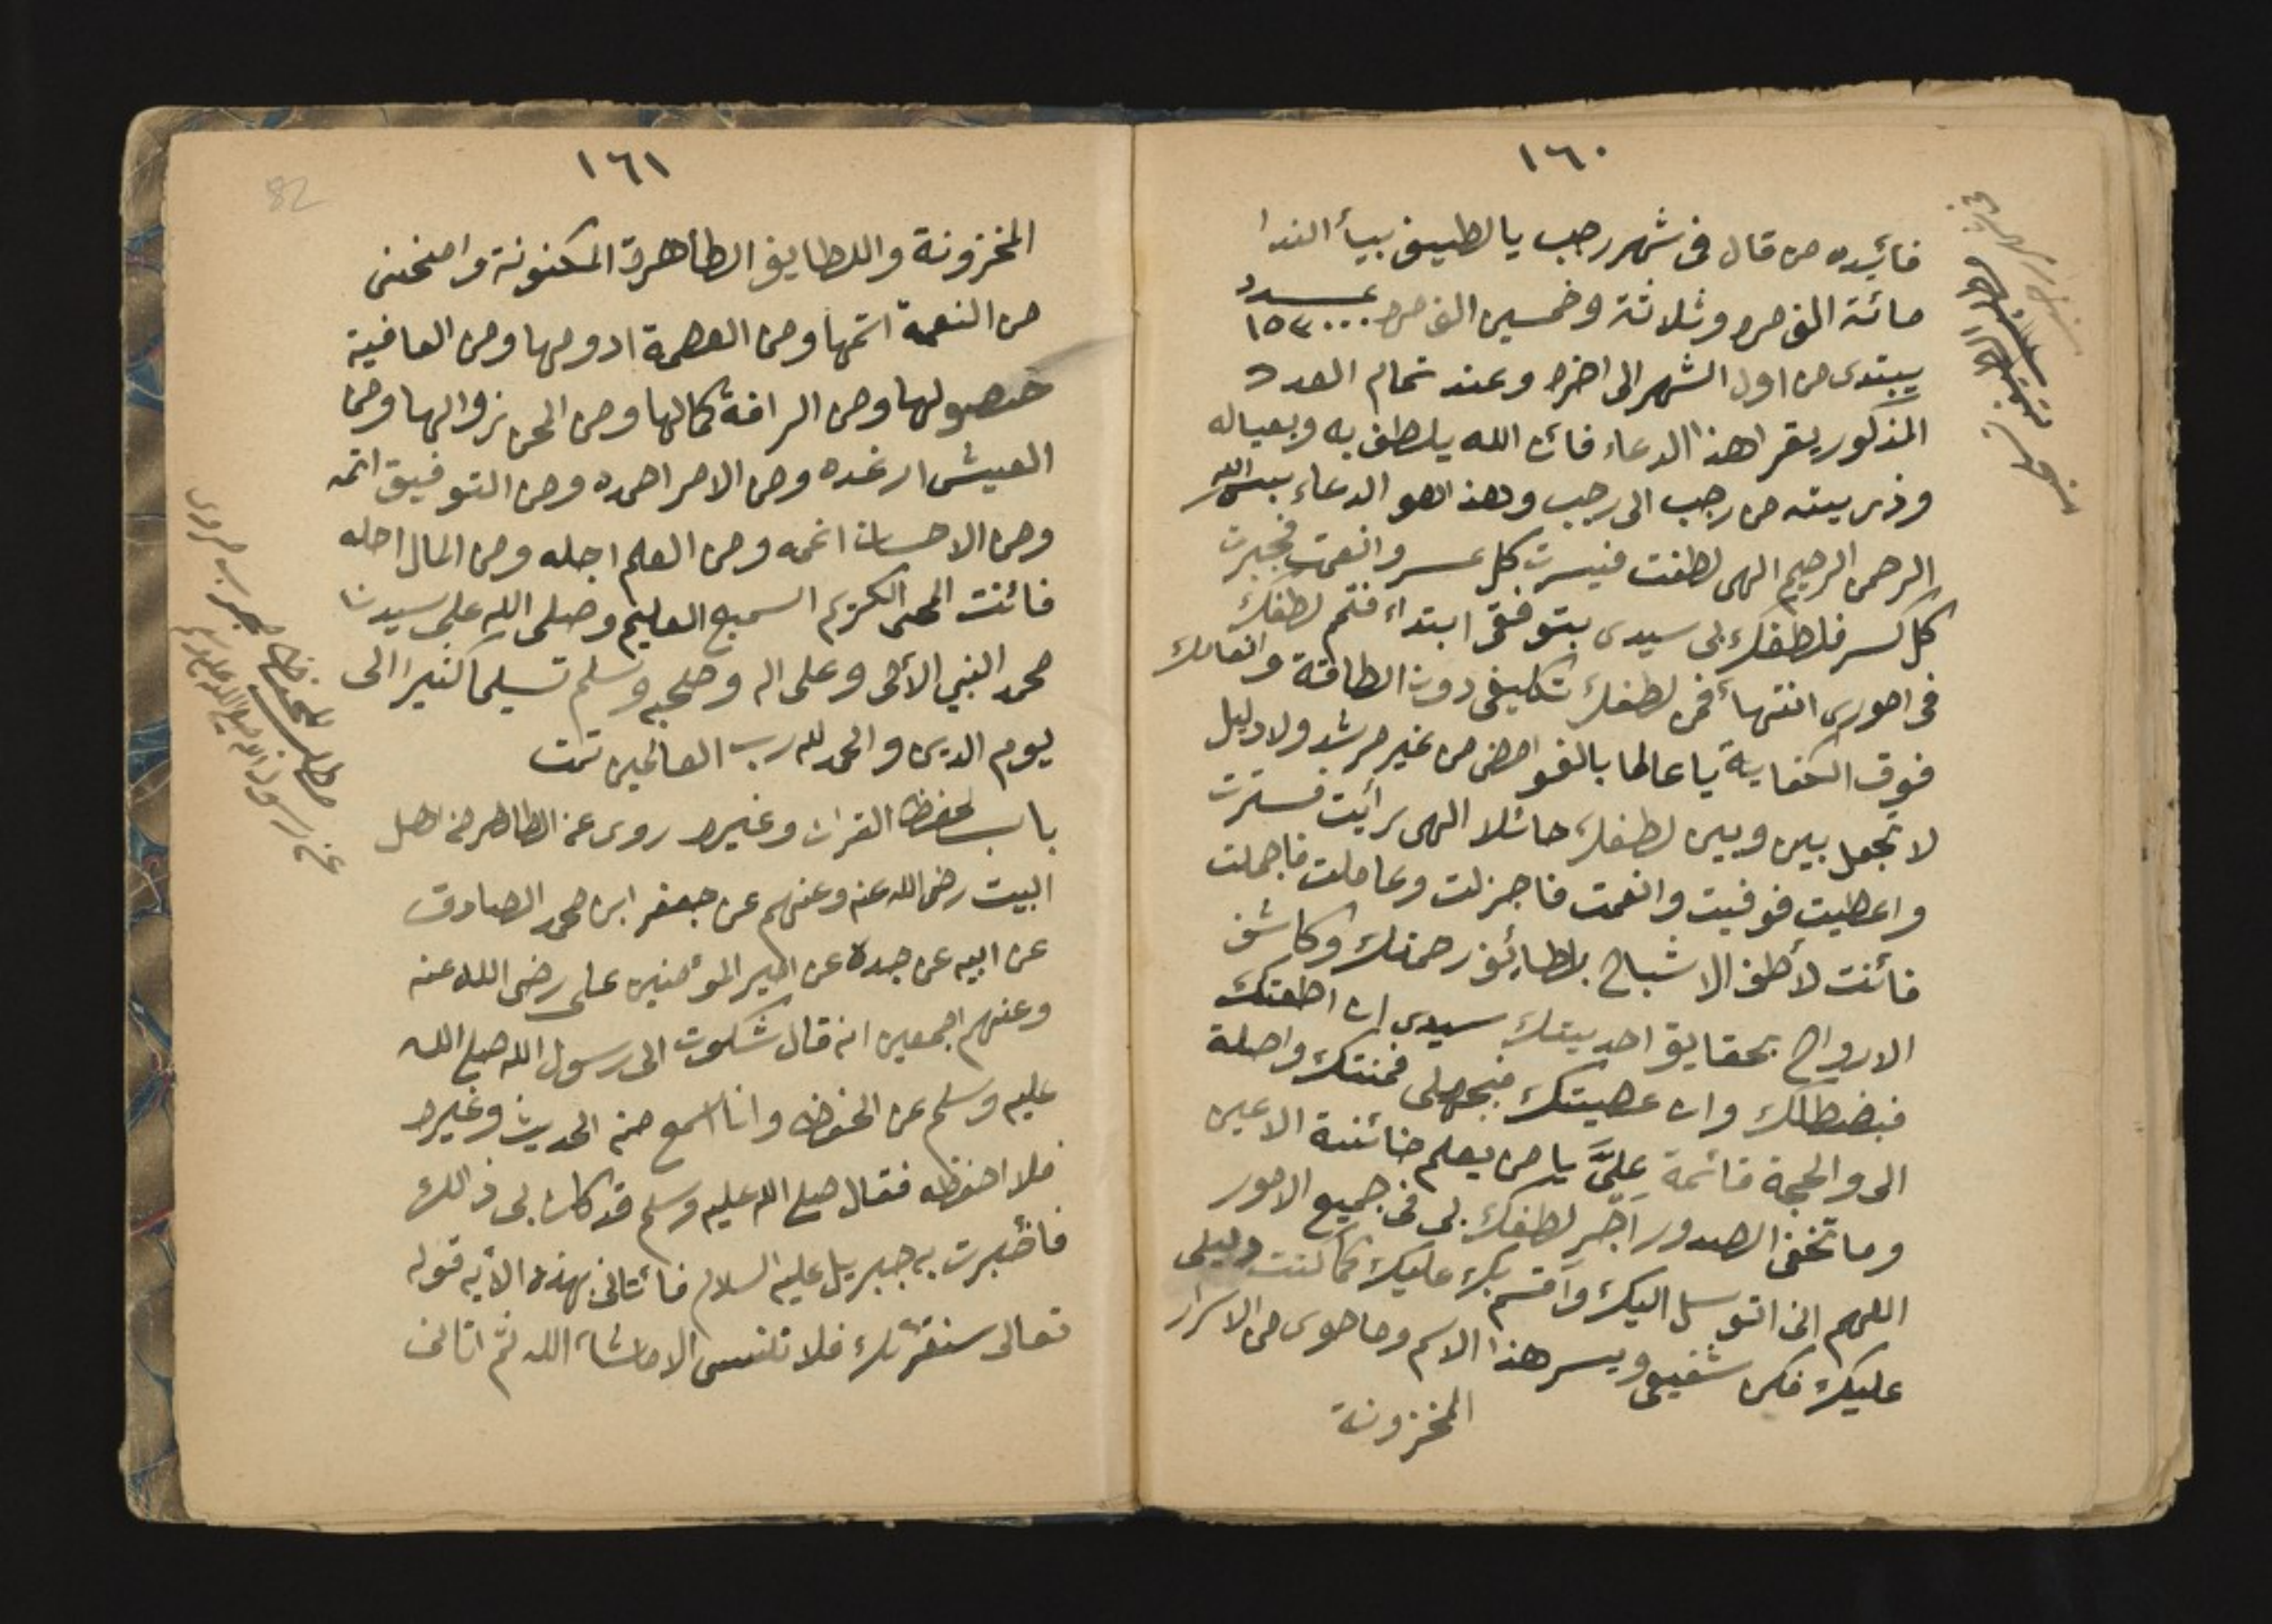 ١٦٠
فائيده من قال فى شهر رجب يا لطييف بيأ الندا
مائة الف مره وثلاثة وخمسين الف مره بعدد ١٥٣٠٠٠
يبتدى من اول الشهر الى اخره وعند تمام العدد
المذكور يقرا هذا الدعاء فائن الله يلطف به وبعياله
وذرييته من رجب الى رجب وهذا هو الدعاء بسم الله
الرحمن الرحيم الهى لطفت فيسرت كل عسر وانعمت فجبرت
كل كسر فلطفك بى سيدى بتوفقى ابتداء فتمم لطفك
فى امورى انتهاء فمن لطفك تكليفى دون الطاقة وانعامك
فوق الكفاية يا عالما بالغوامض من غير مرشد ولا دليل
لا تجعل بين وبين لطفك حائلا الهى رأيت فسترت
واعطيت فوفيت وانعمت فاجزلت وعاملت فاجملت
فائنت لأطف الاشباح بلطايئف رحمتك وكاشف
الارواح بحقايق احدييتك سيدى ان اطعتك
فبفضلك وان عصيتك فبجهلى فمنتك واصلة
الى والحجة قائمة علىَّ يا من يعلم خائنة الاعين
وما تخفى الصدور اجرِ لطفك بى فى جميع الامور
اللهم انى اتوسل اليك واقسم بك عليك كما كنت دليلى
عليك فكن شفيعى وبسر هذا الاسم وما حوى من الاسرار
المخزونة
١٦١
82
المخزونة واللطايف الطاهرة المكنونة وامنحنى
من النعمة اتمها ومن العصمة ادومها ومن العافية
حصولها ومن الرافة كمالها ومن المحن زوالها ومن
العيش ارغده ومن الامر احمده ومن التوفيق اتمه
ومن الاحسان اعمه ومن العلم اجله ومن المال احله
فائنت الحى الكريم السميع العليم وصلى الله على سيدنا
محمد النبي الأمى وعلى اله وصحبه وسلم تسليما كثيرا الى
يوم الدين والحمد لله رب العالمين تمت
باب لحفظ القران وغيره روى عن الطاهر من اهل
البيت رضى الله عنه وعنهم عن جعفر ابن محمد الصادق
عن ابيه عن جده عن امير المؤمنين على رضى الله عنه
وعنهم اجمعين انه قال شكوت الى رسول الله صلى الله
عليه وسلم عن الحفظ وانا اسمع منه الحديث وغيره
فلا احفظه فقال صلى الله عليه وسلم قد كان بى ذالك
فأخبرت به جبريل عليه السلام فأتانى بهذه الأيه قوله
تعالى سنقرئك فلا تنسى الا ماشاء الله ثم اتانى